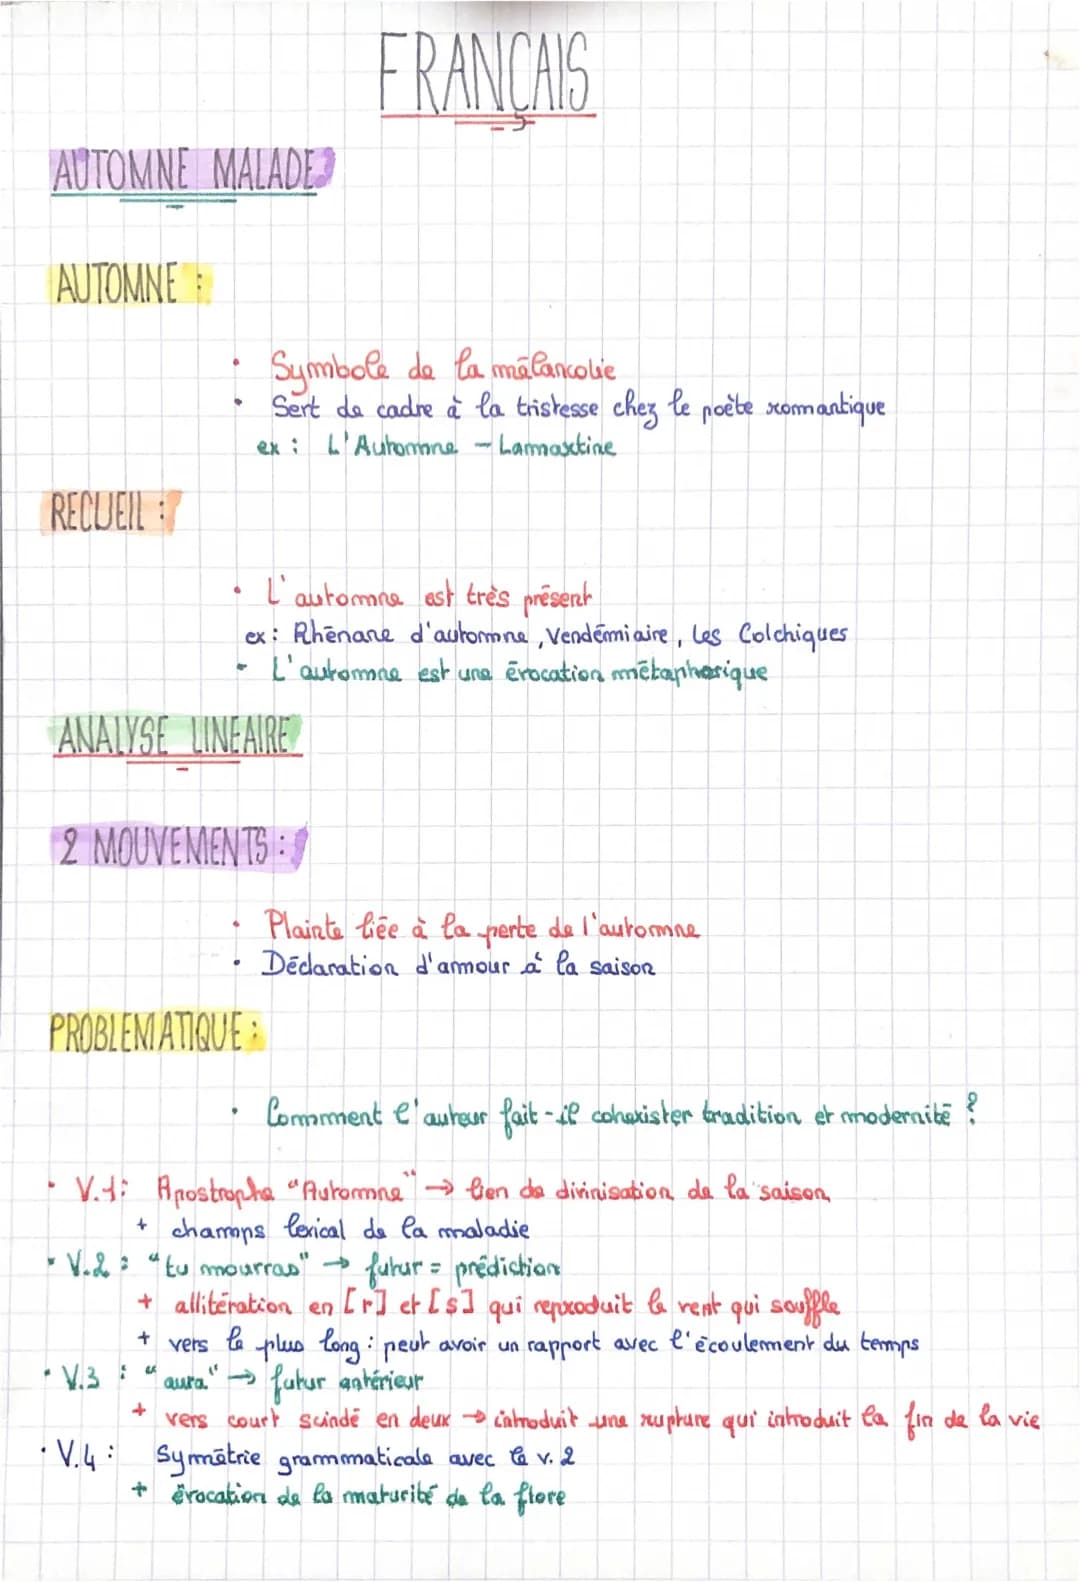 FRANÇAIS
AUTOMNE MALADE
AUTOMNE :
• Symbole de la mélancolie
• Sert de cadre à la tristesse chez le poète rommantique
ex : L'Automne - Lamartine
RECUEIL :
• L'automne est très présent
ex : Rhénane d'automne, Vendémiaire, Les Colchiques
• L'automne est une évocation métaphorique
ANALYSE LINEAIRE
2 MOUVEMENTS :
• Plainte liée à la perte de l'automne
• Déclaration d'amour à la saison
PROBLEMATIQUE :
• Comment l'auteur fait-il cohexister tradition et modernité ?
• V.1 : Apostrophe "Automne" → lien de divinisation de la saison
+ champs lexical de la maladie
• V.2 : "tu mourras" → futur = prédiction
+ allitération en [r] et [s] qui reproduit le vent qui souffle
+ vers le plus long : peut avoir un rapport avec l'écoulement du temps
• V.3 : "aura" → futur antérieur
+ vers court scindé en deux → introduit une rupture qui introduit la fin de la vie
• V.4 : Symétrie grammaticale avec le v. 2
+ évocation de la maturité de la flore